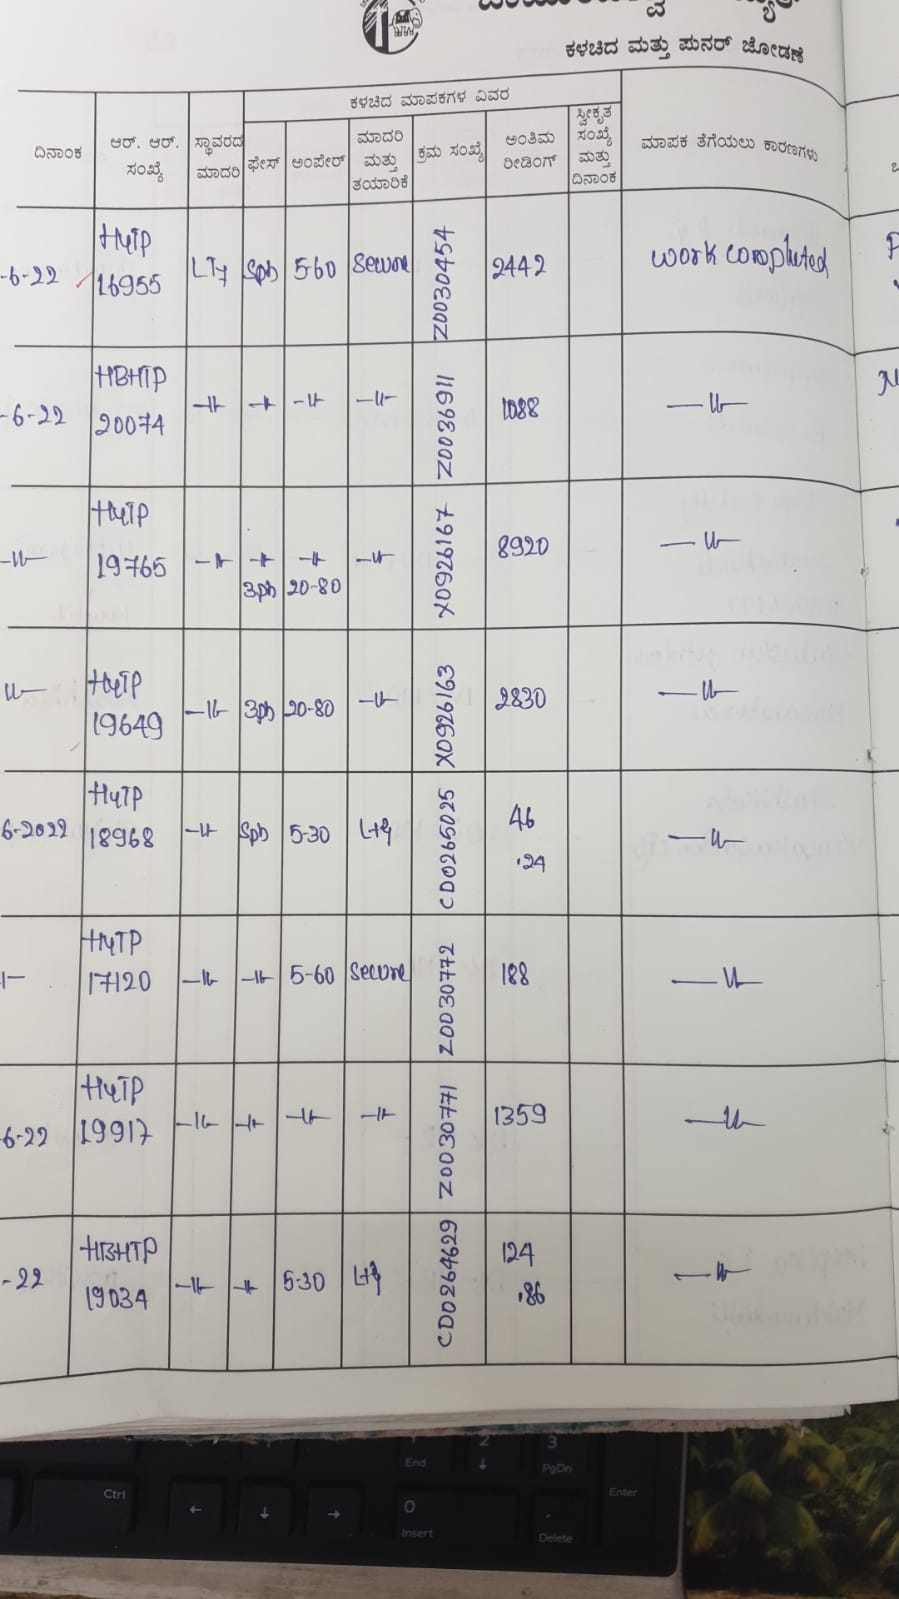 ಕಳಚಿದ ಮತ್ತು ಪುನರ್ ಜೋಡಣೆ
ಕಳಚಿದ ಮಾಪಕಗಳ ವಿವರ
ದಿನಾಂಕ
ಆರ್. ಆರ್. ಸಂಖ್ಯೆ
ಸ್ಥಾವರದ ಮಾದರಿ
ಫೇಸ್
ಅಂಪೇರ್
ಮಾದರಿ ಮತ್ತು ತಯಾರಿಕೆ
ಕ್ರಮ ಸಂಖ್ಯೆ
ಅಂತಿಮ ರೀಡಿಂಗ್
ಸ್ವೀಕೃತ ಸಂಖ್ಯೆ ಮತ್ತು ದಿನಾಂಕ
ಮಾಪಕ ತೆಗೆಯಲು ಕಾರಣಗಳು
-6-22 H4TP 16955 LT7 Sph 5-60 Secure Z0030454 2442 work completed
-6-22 HBHTP 20074 -〃- -〃- -〃- -〃- Z0036911 1088 -〃-
-〃- H4TP 19765 -〃- -〃- 3ph -〃- 20-80 -〃- X0926167 8920 -〃-
〃- H4TP 19649 -〃- 3ph 20-80 -〃- X0926163 2830 -〃-
6-2022 H4TP 18968 -〃- Sph 5-30 L+g CD0265025 46 .24 -〃-
H4TP 17120 -〃- -〃- 5-60 Secure Z0030772 188 -〃-
6-22 H4TP 19917 -〃- -〃- -〃- -〃- Z0030771 1359 -〃-
-22 HBHTP 19034 -〃- -〃- 5-30 L+g CD0264629 124 .86 -〃-
End
2
3
PgDn
Ctrl
0
Insert
.
Delete
Enter